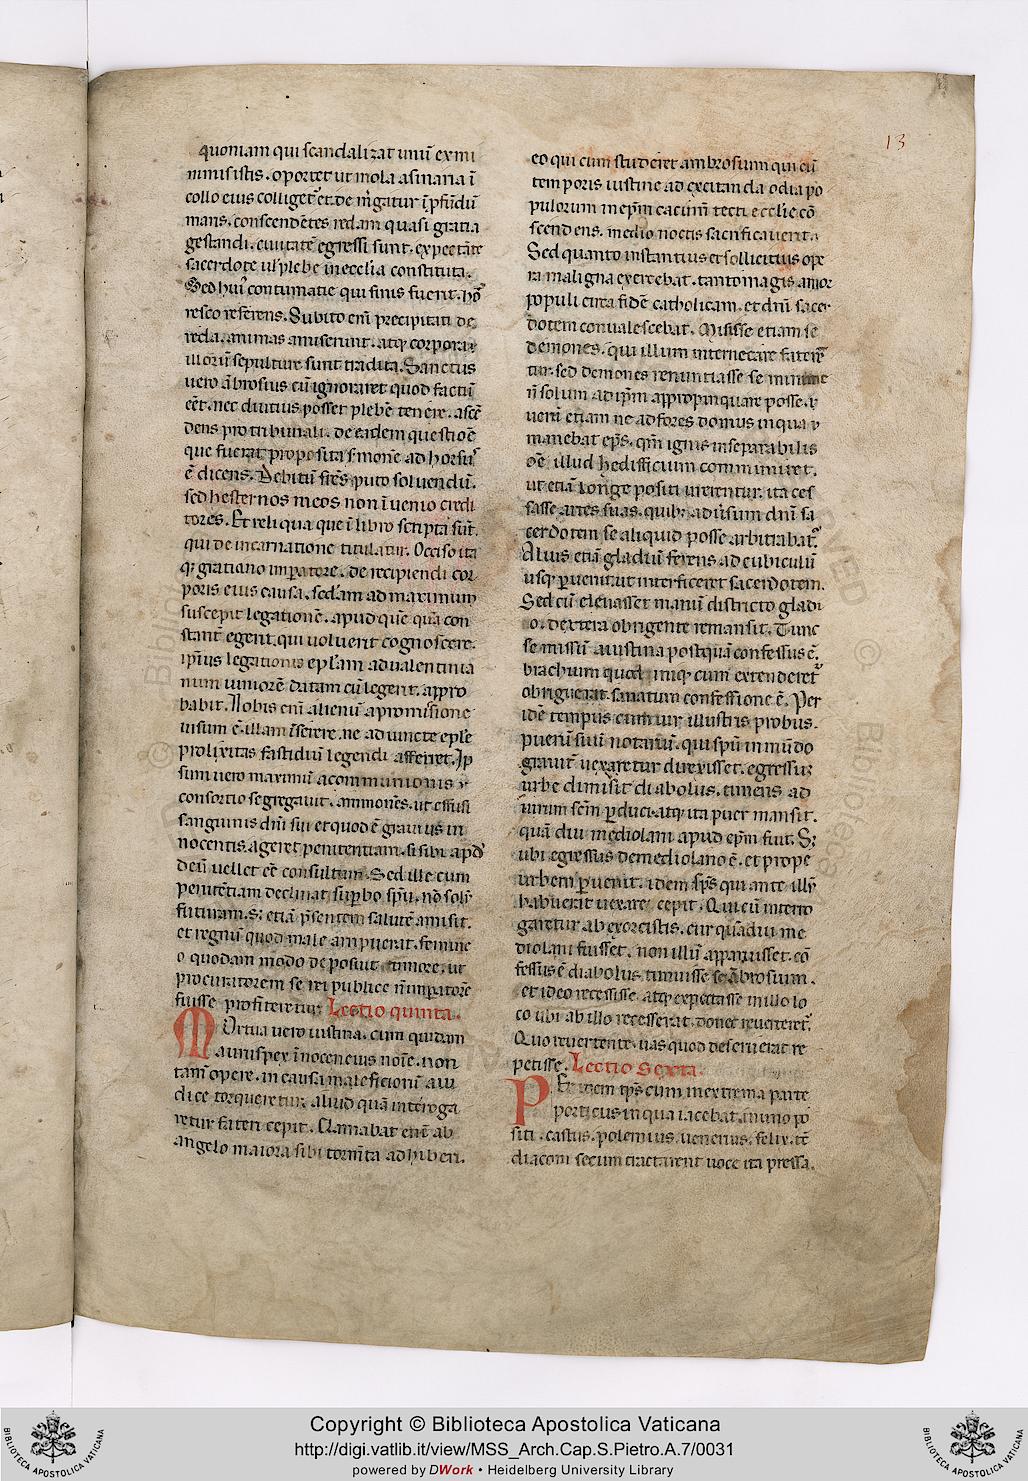 13
quoniam qui scandalizat unū ex mi
nimis istis. oportet ut mola asinaria ī
collo eius colligetᷣ et demᷣgatur ī pfūdū
maris. conscendētes redam quasi gratia
gestandi. ciuitatē egressi sunt. expectāte
sacerdote ul' plebe in ecclia constituta.
Sed huiᷣ contumatie qui finis fuerit. hōᷣ
resco referens. Subito eni precipitati de
reda. animas amiserunt. atq; corpora
illorū sepulture sunt tradita. Sanctus
uero ābrosius cū ignoraret quod factū
eēt. nec diutius posset plebē tenere. ascē
dens pro tribunali. de eadem questiōe
que fuerat proposita sᷣmonē ad horsuᷣ
ē dicens. Debitū frēs puto soluendū.
sed hesternos meos non īuenio credi
tores. Et reliqua que ī libro scripta sūt.
qui de incarnatione titulatur. Occiso ita
q; gratiano imperatore. de recipiendi cor
poris eius causa. sedam ad maximum
suscepit legationē. apud quē quā con
stant egerit. qui uoluerit cognoscere.
ip̄ius legationis epl'am ad ualentinia
num iuniorē datam cū legerit. appro
babit. Nobis eni alienū a promissione
uisum ē. illam īserere. ne adiuncte eple
prolixitas fastidiū legendi afferret. Ip
sum uero maximū a communionis
consortio segregauit. ammonēs. ut effusi
sanguinis dn̄i sui et quod ē grauius in
nocentis. ageret penitentiam. si sibi apd'
deū uellet eē consultum. Sed ille cum
penitētiam declinat supbo spū. nō solū
futuram. S; etiā p̄sentem salutē amisit.
et regnū quod male arripuerat. femine
o quodam modo deposuit timore. ut
procuratorem se rei publice nō īperatorē
fuisse profiteretur. Lectio quinta.
MOrtua uero iustina. cum quidam
auruspex īnocencius noīe. non
tam opere. in causa maleficiorū a iu
dice torqueretur. aliud quā interoga
retur fateri cepit. Clamabat eni ab
angelo maiora sibi tormīta adhiberi.
eo qui cum studeret ambrosium qui cū
temporis iustine ad excitanda odia po
pulorum in epm cacumī tecti ecclie cō
scendens. medio noctis sacrificauerit.
Sed quanto instantius et sollicitius ope
ra maligna exercebat. tanto magis amor
populi circa fidē catholicam. et dnī sacer
dotem conualescebat. Misisse etiam se
demones. qui illum internecare faterē
tur. sed demones renuntiasse se minime
n̄ solum ad ip̄m appropinquare posse.
uerū etiam ne ad fores domus in qua
manebat ep̄s. qm̄ ignis inseparabilis
oē illud hedifficium communiret.
ut etiā longe positi urerentur. ita ces
sasse artes suas. quib; aduᷣsum dnī sa
cerdotem se aliquid posse arbitrabatᷣ.
Alius etiā gladiū ferens ad cubiculū
usq; puenit. ut interficeret sacerdotem.
Sed cū eleuasset manū districto gladi
o. dextera obrigente remansit. Tunc
se missū a iustina postquā confessus ē.
brachium quod iniq; cum extenderetᷣ
obriguerat. sanatum confessione ē. Per
idē tempus cum uir illustris probus.
puerū suū notariū. qui spū inmūdo
grauit uexaretur direxisset. egressus
urbe dimisit diabolus. timens ad
uirum scm̄ pduci. atq; ita puer mansit.
quā diu mediolani apud ep̄m fuit. S;
ubi egressus de mediolano ē. et prope
urbem puenit. idem sp̄s qui ante illū
habuerit uexare cepit. Qui cū interro
garetur ab exorcistis. cur quādiu me
diolani fuisset. non illū apparuisset. cō
fessus ē diabolus. timuisse se ābrosium.
et ideo recessisse. atq; expectasse in illo lo
co ubi ab illo recesserat. donec reuerteretᷣ.
Quo reuertente. uas quod deseruerat re
petisse. Lectio Sexta.
PEr idem tp̄s cum in extrema parte
porticus in qua iacebat. in uno po
siti. castus. polemius. uenerius. felix. tc̄
diaconi secum tractarent uoce ita pressa.
Copyright © Biblioteca Apostolica Vaticana
http://digi.vatlib.it/view/MSS_Arch.Cap.S.Pietro.A.7/0031
powered by DWork • Heidelberg University Library
BIBLIOTECA APOSTOLICA VATICANA
BIBLIOTECA APOSTOLICA VATICANA